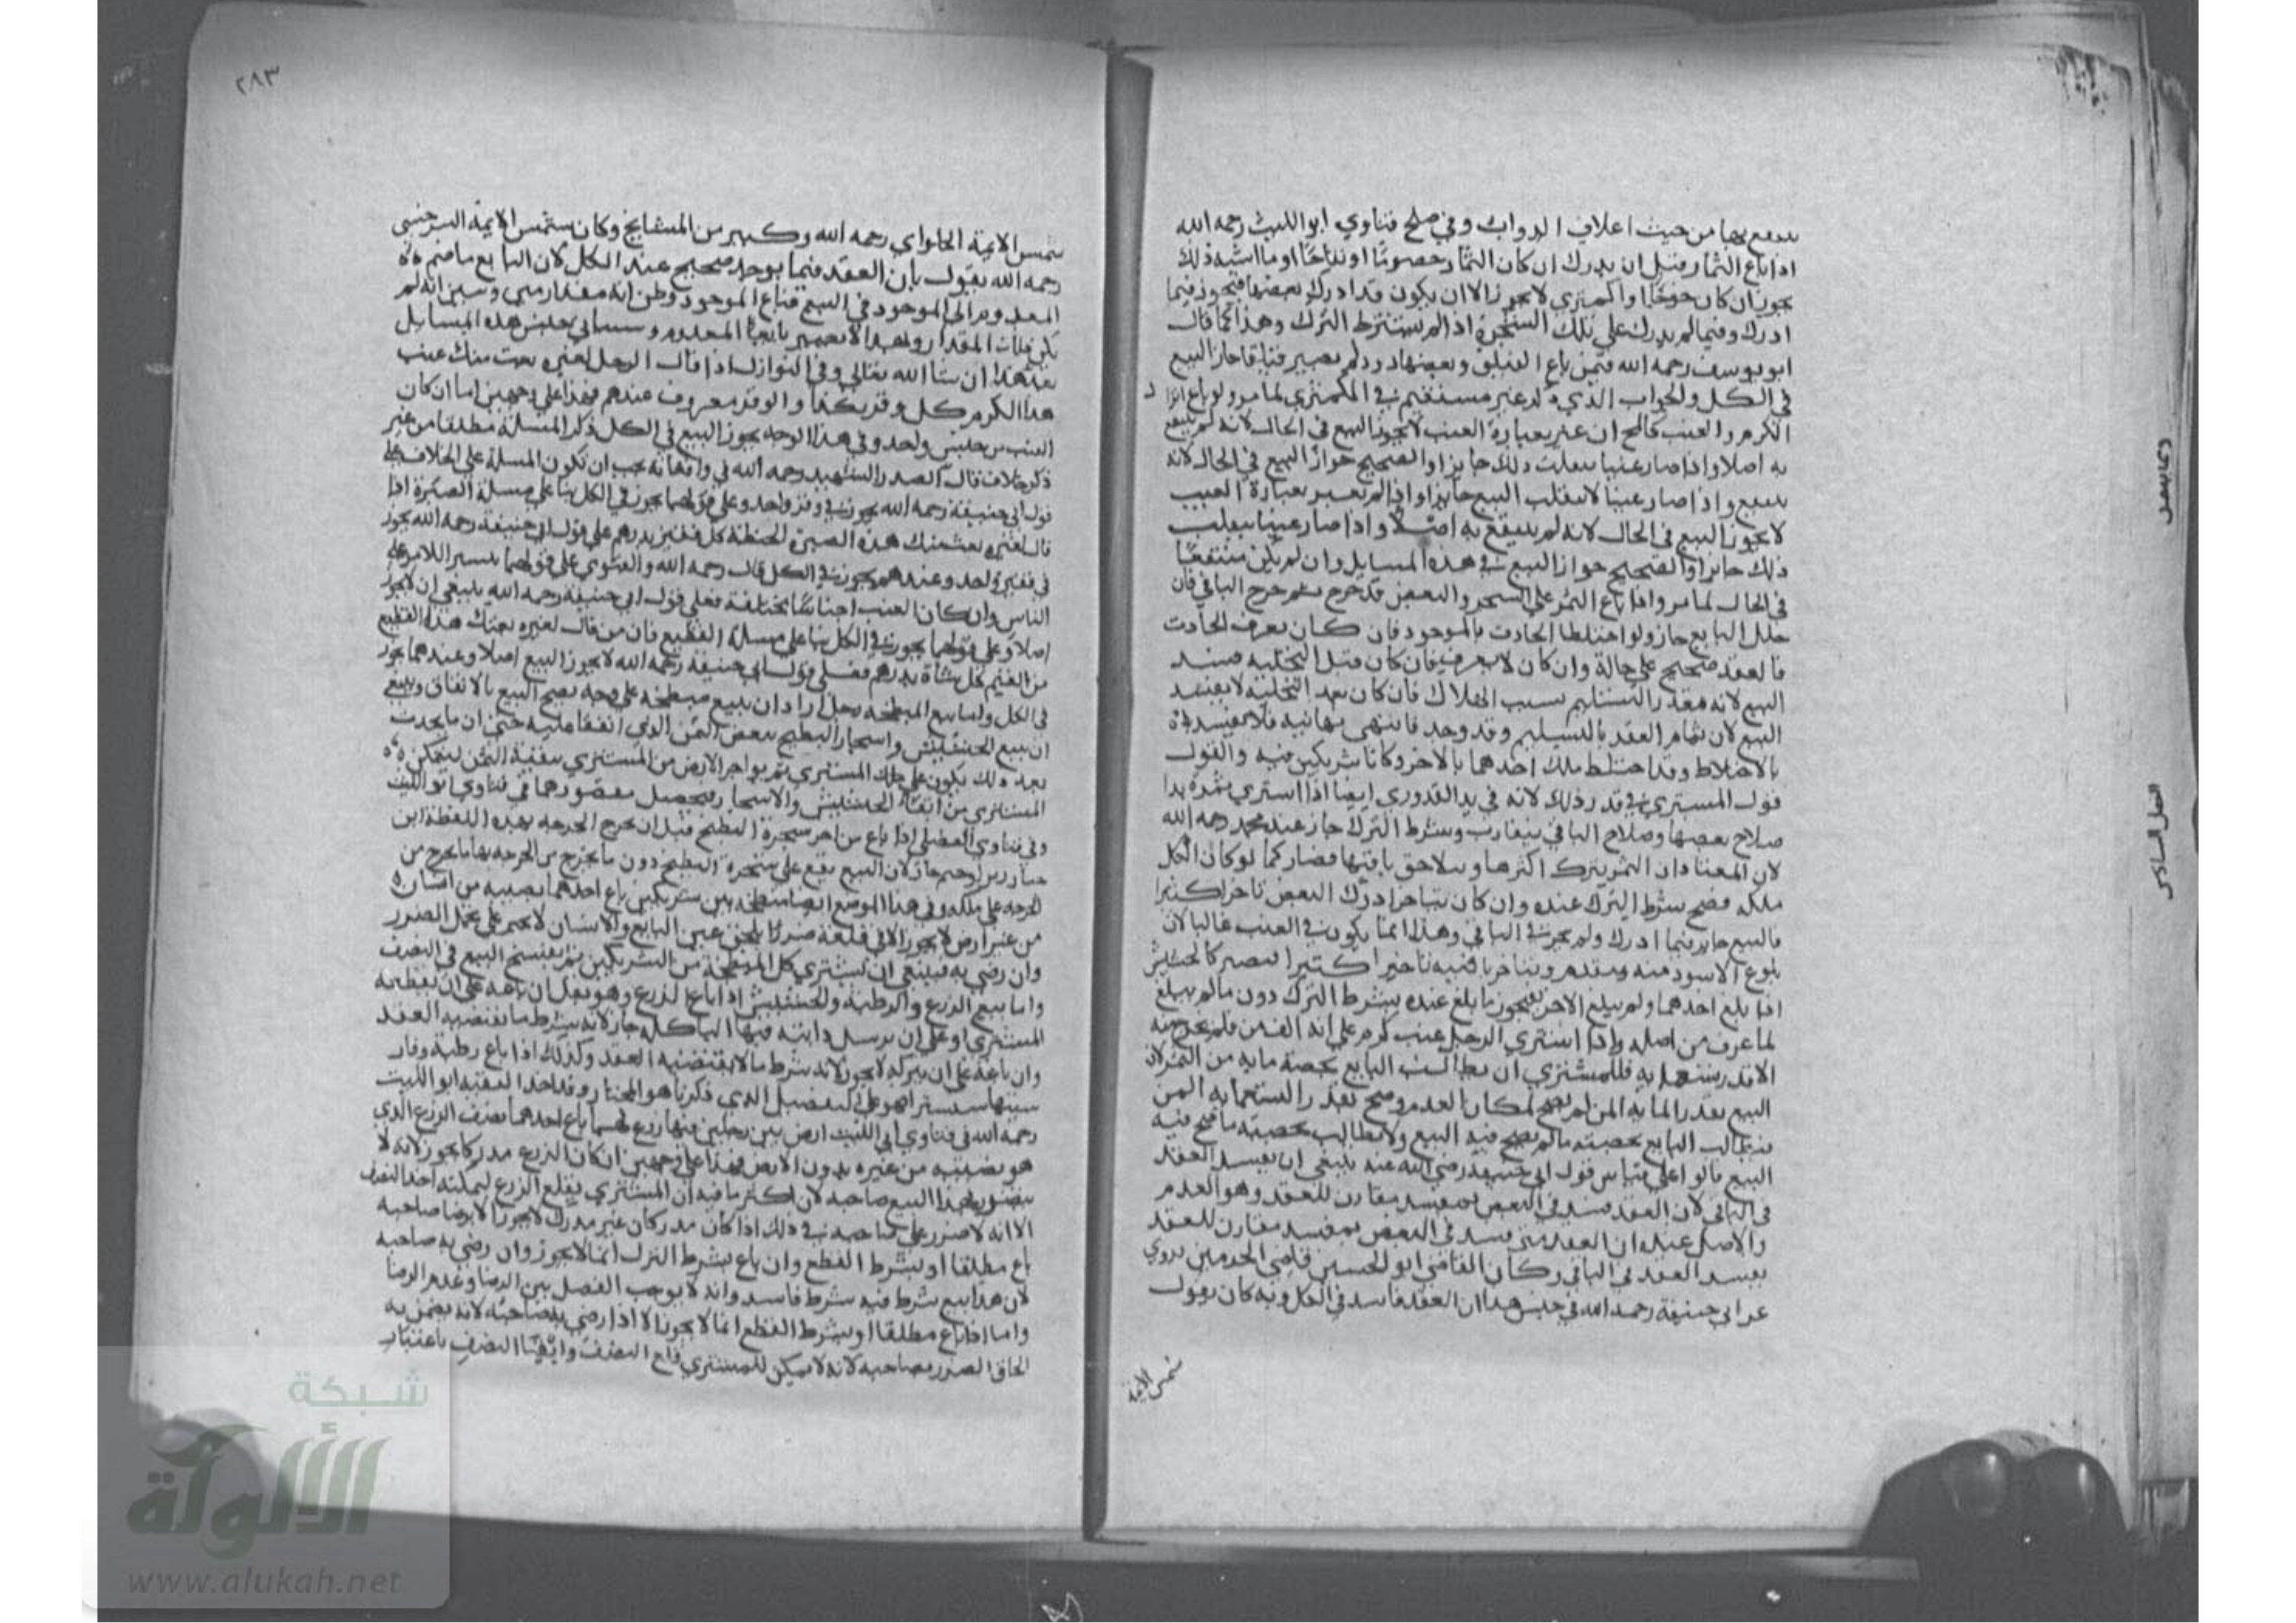 من حيث اعلاف الدواب وفي صلح فتاوي ابو الليث رحمه الله
اذا باع الثمار قبل ان يدرك ان كان الثمار حصرما او تفاحا او ما اشبه ذلك
يجوز ان كان خوخا او كمثري لا يجوز الا ان يكون قد ادرك بعضها فيجوز فيما
ادرك وفيما لم يدرك على تلك الشجرة اذا لم يشترط الترك وهذا كما قال
ابو يوسف رحمه الله فيمن باع الفيلق وبعضها دود لم يصير فيلقا جاز البيع
في الكل والجواب الذي غير مستقيم في الكمثري لما مر ولو باع
الكرم والعنب كالح ان عبر بعبارة العنب لا يجوز البيع في الحال لانه لم ينتفع
به اصلا واذا صار عنبا ينقلب ذلك جايزا والصحيح جواز البيع في الحال لانه
ينتفع واذا صار عنبا لا ينقلب البيع جايزا واذا لم يعبر بعبارة العنب
لا يجوز البيع في الحال لانه لم ينتفع به اصلا واذا صار عنبا ينقلب
ذلك جايزا والصحيح جواز البيع في هذه المسايل وان لم يكن منتفعا
في الحال لما مر واذا باع الثمر على الشجر والبعض قد خرج ثم خرج الباقي فان
حلل البايع جاز ولو اختلط الحادث بالموجود فان كان يعرف الحادث
فالعقد صحيح على حالة وان كان لا يعرف فان كان قبل التخلية فسد
البيع لانه تعذر التسليم بسبب اختلاط فان كان بعد التخلية لا يفسد
البيع لان تمام العقد بالتسليم وقد وجد فانتهى نهايته فلا يفسد
بالاختلاط وقد اختلط ملك احدهما بالاخر وكانا شريكين فيه والقول
قول المشتري في قدر ذلك لانه في يد القدوري ايضا اذا اشتري ثمرة بدا
صلاح بعضها وصلاح الباقي يتقارب وشرط الترك جاز عند محمد رحمه الله
لان المعتاد ان الثمر يترك اكثرها ويتلاحق باقيها فصار كما لو كان الكل
ملكه فصح شرط الترك عنده وان كان يتاخر ادراك البعض تاخرا كثيرا
فالبيع جايز فيما ادرك ولم يجز في الباقي وهذا انما يكون في العنب غالبا لان
بلوغ الاسود منه يتقدم ويتاخر باقيه تاخيرا كثيرا فيصير كالجنسين
اذا بلغ احدهما ولم يبلغ الاخر فيجوز ما بلغ عنده بشرط الترك دون ما لم يبلغ
لما عرف من اصله واذا اشتري الرجل عنب كرم على انه الف من فلم يخرج منه
الا قدر تسعمايه فللمشتري ان يطالب البايع بحصة مايه من الثمن لان
البيع بقدر المايه المن لم يصح لمكان العدم وصح بقدر التسعمايه المن
فيطالب البايع بحصته ما لم يصح فيه البيع ولا يطالب بحصته ما صح فيه
البيع قالوا على قياس قول ابي حنيفة رضي الله عنه ينبغي ان يفسد العقد
في الباقي لان العقد فسد في البعض بمفسد مقارن للعقد وهو العدم
والاصل عنده ان العقد متى فسد في البعض بمفسد مقارن للعقد
يفسد العقد في الباقي وكان القاضي ابو الحسين قاضي الحرمين يروي
عن ابي حنيفة رحمه الله في جنس هذا ان العقد فاسد في الكل وبه كان يقول
شمس الايمة
٢٨٣
شمس الايمة الحلواي رحمه الله وكثير من المشايخ وكان شمس الايمة السرخسي
رحمه الله يقول بان العقد فيما يوجد صحيح عند الكل لان البايع ما ضم
المعدوم الى الموجود في البيع فباع الموجود وظن انه مقدار مبين وتبين انه لم
يكن ذلك المقدار وبهذا لا يصير بايعا المعدوم وسياتي بجنس هذه المسايل
بعد هذا ان شا الله تعالي وفي النوازل اذا قال الرجل لغيره بعت منك عنب
هذا الكرم كل وقر بكذا والوقر معروف عندهم فهذا على وجهين اما ان كان
العنب من جنس واحد وفي هذا الوجه يجوز البيع في الكل ذكر المسئلة مطلقا من غير
ذكر خلاف قال الصدر الشهيد رحمه الله في واقعاته يجب ان تكون المسلة على الخلاف على
قول ابي حنيفة رحمه الله يجوز في وقر واحد وعلى قولهما يجوز في الكل بنا على مسئلة الصبرة اذا
قال لغيره بعت منك هذه الصبرة الحنطة كل قفيز بدرهم على قول ابي حنيفة رحمه الله يجوز
في قفيز واحد وعندهم يجوز في الكل قال رحمه الله والفتوي على قولهما تيسيرا للامر على
الناس وان كان العنب اجناسا مختلفة فعلى قول ابي حنيفة رحمه الله ينبغي ان لا يجوز
اصلا وعلى قولهما يجوز في الكل بنا على مسئلة القطيع فان من قال لغيره بعتك هذا القطيع
من الغنم كل شاة بدرهم فعلى قول ابي حنيفة رحمه الله لا يجوز البيع اصلا وعندهما يجوز
في الكل واما بيع المبطخه رجل اراد ان يبيع مبطخه على وجه يصح البيع بالاتفاق ينبغي
ان يبيع الحشيش واشجار البطيخ ببعض الثمن الذي اتفقا عليه حتى ان ما يحدث
بعد ذلك يكون على ملك المشتري ثم يواجر الارض من المشتري ببقية الثمن ليتمكن
المشتري من ابقاء الحشيش والاشجار فيحصل مقصودهما في فتاوي ابو الليث
وفي فتاوي الفضلي اذا باع من اخر شجرة البطيخ قبل ان يخرج الخرجه بهذه اللفظة اين
جاز لان البيع يقع على شجرة البطيخ دون ما يخرج من الخرجه ما يخرج من
الخرجه على ملكه وفي هذا الموضع ايضا مبطخه بين شريكين باع احدهما نصيبه من انسان
من غير ارض لا يجوز لان في قلعه ضررا يلحق غير البايع والانسان لا يجبر على تحمل الضرر
وان رضي به فينبغي ان يشتري كل المبطخة من الشريكين ثم يفسخ البيع في النصف
واما بيع الزرع والرطبة والحشيش اذا باع الزرع وهو بقل ان باعه على ان يقطعه
المشتري او على ان يرسل دابته فيها لتاكله جاز لانه شرط ما يقتضيه العقد
وان باعه على ان يتركه لا يجوز لانه شرط ما لا يقتضيه العقد وكذلك اذا باع رطبة
فهو على التفصيل الذي ذكرنا هو المختار وقد اخذ الفقيه ابو الليث
رحمه الله في فتاوي ابي الليث ارض بين رجلين فيها زرع لهما باع احدهما نصف الزرع الذي
هو نصيبه من غيره بدون الارض فهذا على وجهين ان كان الزرع مدركا يجوز لانه لا
يتضرر بهذا البيع صاحبه لان اكثر ما فيه ان المشتري يقلع الزرع
الا انه لا ضرر على صاحبه في ذلك اذا كان مدركا وان كان غير مدرك لا يجوز الا برضا صاحبه
باع مطلقا او بشرط القطع وان باع بشرط الترك انما لا يجوز وان رضي به صاحبه
لان هذا بيع شرط فيه شرط فاسد وانه لا يوجب الفصل بين الرضا وعدم الرضا
واما اذا باع مطلقا او بشرط القطع انما لا يجوز الا اذا رضي به صاحبه لانه يضمن به
الحاق الضرر بصاحبه لانه لا يمكن للمشتري قلع النصف وابقينا النصف باعتبار
شبكة
الألوكة
www.alukah.net